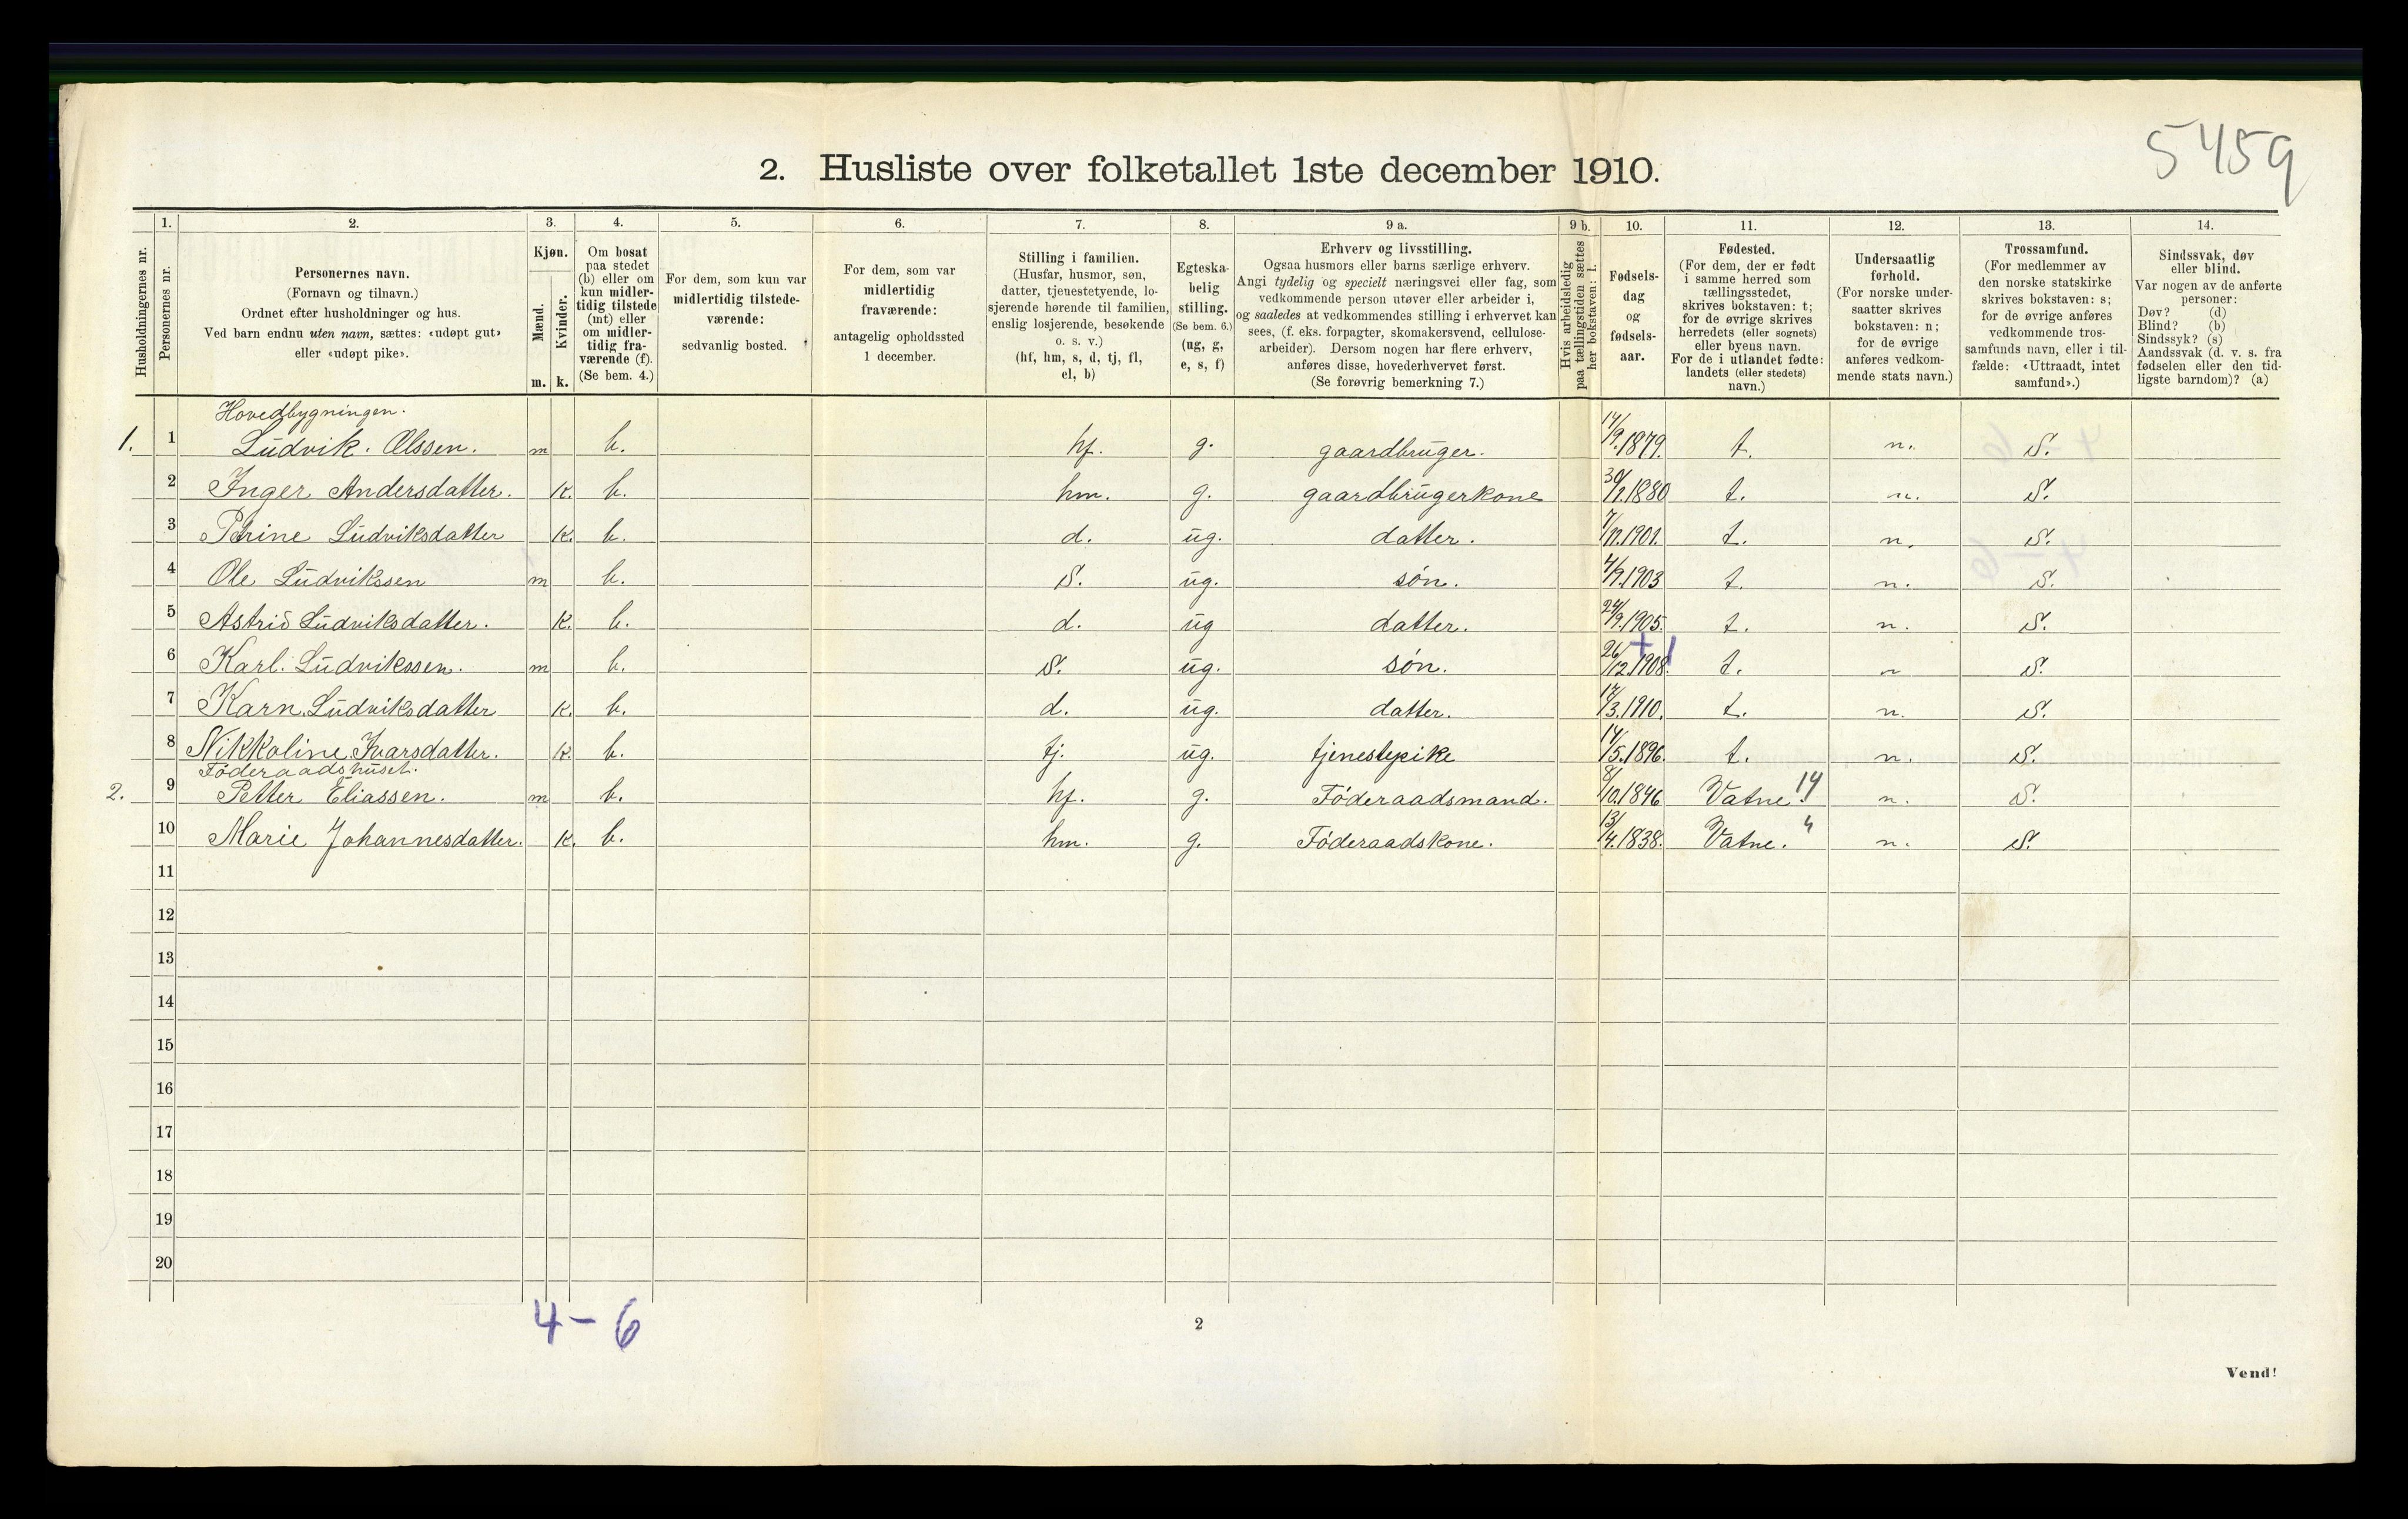 5459
2. Husliste over folketallet 1ste december 1910.
Husholdningernes nr.
1.
Personernes nr.
2.
Personernes navn.
(Fornavn og tilnavn.)
Ordnet efter husholdninger og hus.
Ved barn endnu uten navn, sættes: «udøpt gut»
eller «udøpt pike».
3.
Kjøn.
Mænd.
Kvinder.
m. k.
4.
Om bosat
paa stedet
(b) eller om
kun midler-
tidig tilstede
(mt) eller
om midler-
tidig fra-
værende (f).
(Se bem. 4.)
5.
For dem, som kun var
midlertidig tilstede-
værende:
sedvanlig bosted.
6.
For dem, som var
midlertidig
fraværende:
antagelig opholdssted
1 december.
7.
Stilling i familien.
(Husfar, husmor, søn,
datter, tjenestetyende, lo-
sjerende hørende til familien,
enslig losjerende, besøkende
o. s. v.)
(hf, hm, s, d, tj, fl,
el, b)
8.
Egteska-
belig
stilling.
(Se bem. 6.)
(ug, g,
e, s, f)
9 a.
Erhverv og livsstilling.
Ogsaa husmors eller barns særlige erhverv.
Angi tydelig og specielt næringsvei eller fag, som
vedkommende person utøver eller arbeider i,
og saaledes at vedkommendes stilling i erhvervet kan
sees, (f. eks. forpagter, skomakersvend, cellulose-
arbeider). Dersom nogen har flere erhverv,
anføres disse, hovederhvervet først.
(Se forøvrig bemerkning 7.)
9 b.
Hvis arbeidsledig
paa tællingstiden sættes
her bokstaven: l.
10.
Fødsels-
dag
og
fødsels-
aar.
11.
Fødested.
(For dem, der er født
i samme herred som
tællingsstedet,
skrives bokstaven: t;
for de øvrige skrives
herredets (eller sognets)
eller byens navn.
For de i utlandet fødte:
landets (eller stedets)
navn.)
12.
Undersaatlig
forhold.
(For norske under-
saatter skrives
bokstaven: n;
for de øvrige
anføres vedkom-
mende stats navn.)
13.
Trossamfund.
(For medlemmer av
den norske statskirke
skrives bokstaven: s;
for de øvrige anføres
vedkommende tros-
samfunds navn, eller i til-
fælde: «Uttraadt, intet
samfund».)
14.
Sindssvak, døv
eller blind.
Var nogen av de anførte
personer:
Døv? (d)
Blind? (b)
Sindssyk? (s)
Aandssvak (d. v. s. fra
fødselen eller den tid-
ligste barndom)? (a)
Hovedbygningen.
1. 1 Ludvik. Olssen. m b. hf. g. gaardbruger. 1879. t. n. S.
2 Inger Andersdatter. k. b. hm. g. gaardbrugerkone 1880 t. n. S.
3 Petrine Ludviksdatter k. b. d. ug. datter. 1901. t. n. S.
4 Ole Ludvikssen m b. S. ug. søn. 4/9.1903 t. n. S.
5 Astrid Ludviksdatter. k. b. d. ug datter. 24/9.1905. t. n. S.
6 Karl. Ludvikssen. m b. S. ug. søn. 26/12.1908. t. n S.
7 Karn. Ludviksdatter k. b. d. ug. datter. 17/3.1910. t. n. S.
8 Nikkoline. Ivarsdatter. k. b. tj. ug. tjenestepike 14/5.1896. t. n. S.
Føderaadshuset.
2. 9 Petter Eliassen. m b. hf. g. Føderaadsmand. 8/10.1846 Vatne. 14 n. S.
10 Marie Johannesdatter. k. b. hm. g. Føderaadskone. 13/4.1838. Vatne. " n. S.
11
12
13
14
15
16
17
18
19
20
4 - 6
2
Vend!